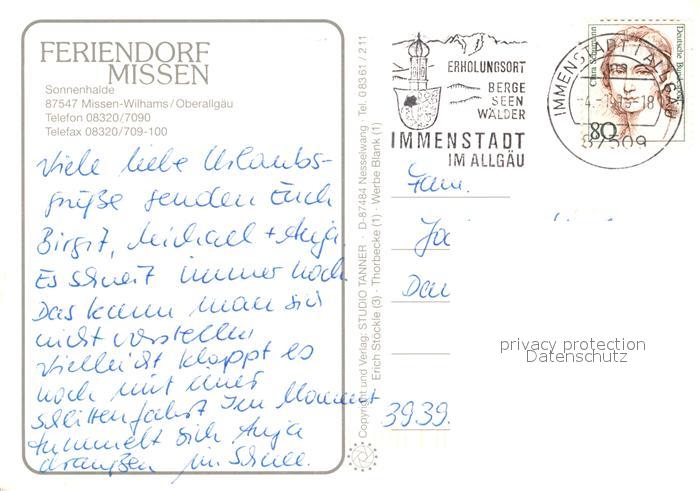 FERIENDORF
MISSEN
Sonnenhalde
87547 Missen-Wilhams/Oberallgäu
Telefon 08320/7090
Telefax 08320/709-100
Viele liebe Urlaubs-
grüße senden Euch
Birgit, Michael + Anja.
Es schneit immer noch
Das kann man sich
nicht vorstellen
vielleicht klappt es
noch mit einer
Schlittenfahrt Im Moment
tummelt sich Anja
draußen im Schnee.
Copyright und Verlag: STUDIO TANNER · D-87484 Nesselwang · Tel. 08361/211
Erich Stöckle (3) · Thorbecke (1) · Werbe Blank (1)
ERHOLUNGSORT
BERGE
SEEN
WÄLDER
IMMENSTADT
IM ALLGÄU
IMMENSTADT I ALLGÄU
-18
87509
Deutsche Bund
Clara Schumann
80
Fam.
Jo
Dan
3939.
privacy protection
Datenschutz